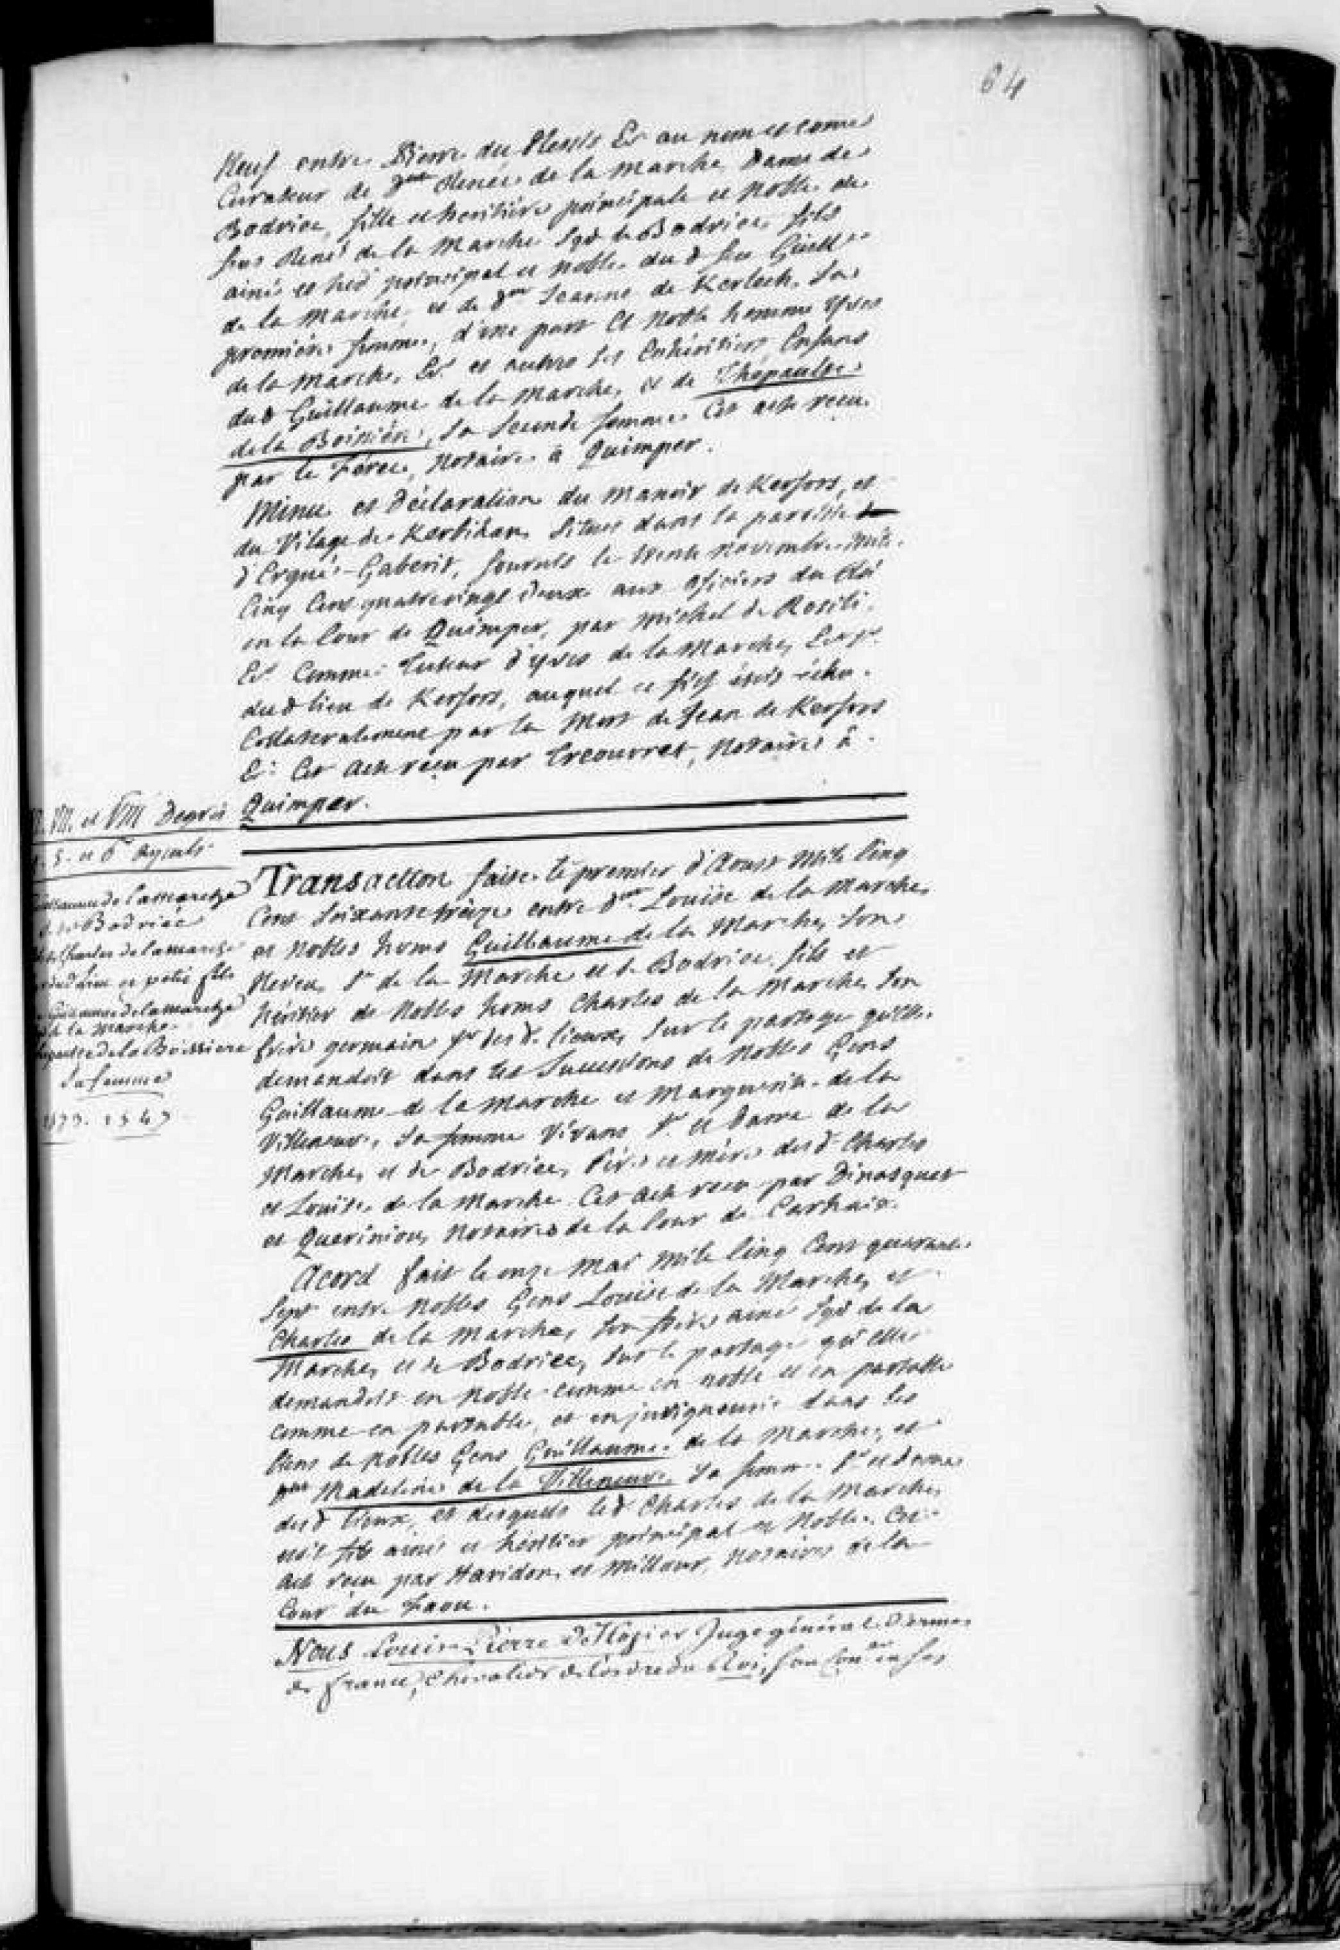 64
Neuf entre Pierre du Plessis Er au nom et come
Curateur de dlle Renée de la Marche, Dame de
Bodriec, fille et heritière principale et noble de
feu René de la Marche Sgr de Bodriec, fils
ainé et her principal et noble du d feu Guille
de la Marche, et de dlle Jeanne de Kerloch, sa
première femme, d'une part Et noble homme Yves
de la Marche, Er et autres ses Cohéritiers Enfans
dud Guillaume de la Marche, et de Thépaulte
de la Boissière, sa seconde femme. Cet acte reçu
par le Févre, Notaire à Quimper.
Minu et déclaration du Manoir de Kerfors, et
du Vilage de Kerbihan, Situés dans la paroisse
d'Ergué-Gaberit, fournis le trente novembre Mile
Cinq Cent quatrevingt deux aux oficiers du Roi
en la Cour de Quimper, par Michel de Rosili
Er Comme Tuteur d'Yves de la Marche, Er sr
dud lieu de Kerfors, auquel ce fief étoit échu
Collateralement par la Mort de Jean de Kerfors
Er Cet Acte reçu par Treouret, Notaire à
Quimper.
VII. et VIII Degrés
5. et 6e Ayeuls
Guillaume de Lamarche
Bodriéc
Charles de Lamarche
dud. lieu et petit fils
Guillaume de Lamarche
de la Marche
de la Boissiere
sa femme
1573. 1547
Transaction faite le premier d'Aoust Mile Cinq
Cent soixante treize entre dlle Louise de la Marche,
et nobles homs Guillaume de la Marche, son
Neveu, Sr de la Marche et de Bodriec, fils et
héritier de Nobles homs Charles de la Marche, son
frère germain sr des d. lieux, Sur le partage qu'elle
demandoit dans les Successions de Nobles Gens
Guillaume de la Marche et Marguerite de la
Villeneuve, sa femme Vivans Sr et Dame de la
Marche, et de Bodriec, Père et mère des d Charles
et Louise de la Marche. Cet acte reçu par Dinasquet
et Querinion, Notaires de la Cour de Carhaix.
Acord fait le onze Mai Mile Cinq Cent quarante
Sept entre Nobles Gens Louise de la Marche, et
Charles de la Marche, son frère ainé Sgr de la
Marche, et de Bodriec, Sur le partage qu'elle
demandoit en noble comme en noble et en partable
comme en partable, et en juveigneurie dans les
biens de Nobles Gens Guillaume de la Marche, et
dlle Madeleine de la Villeneuve sa femme Sr et dame
des d lieux, et desquels led Charles de la Marche,
etoit fils ainé et héritier principal et Noble. Cet
acte reçu par Haridon, et Millour, Notaires de la
Cour du Faou.
Nous Louis-Pierre D'Hozier Juge général D'armes
de France, Chevalier de l'ordre du Roi, son Conler en ses